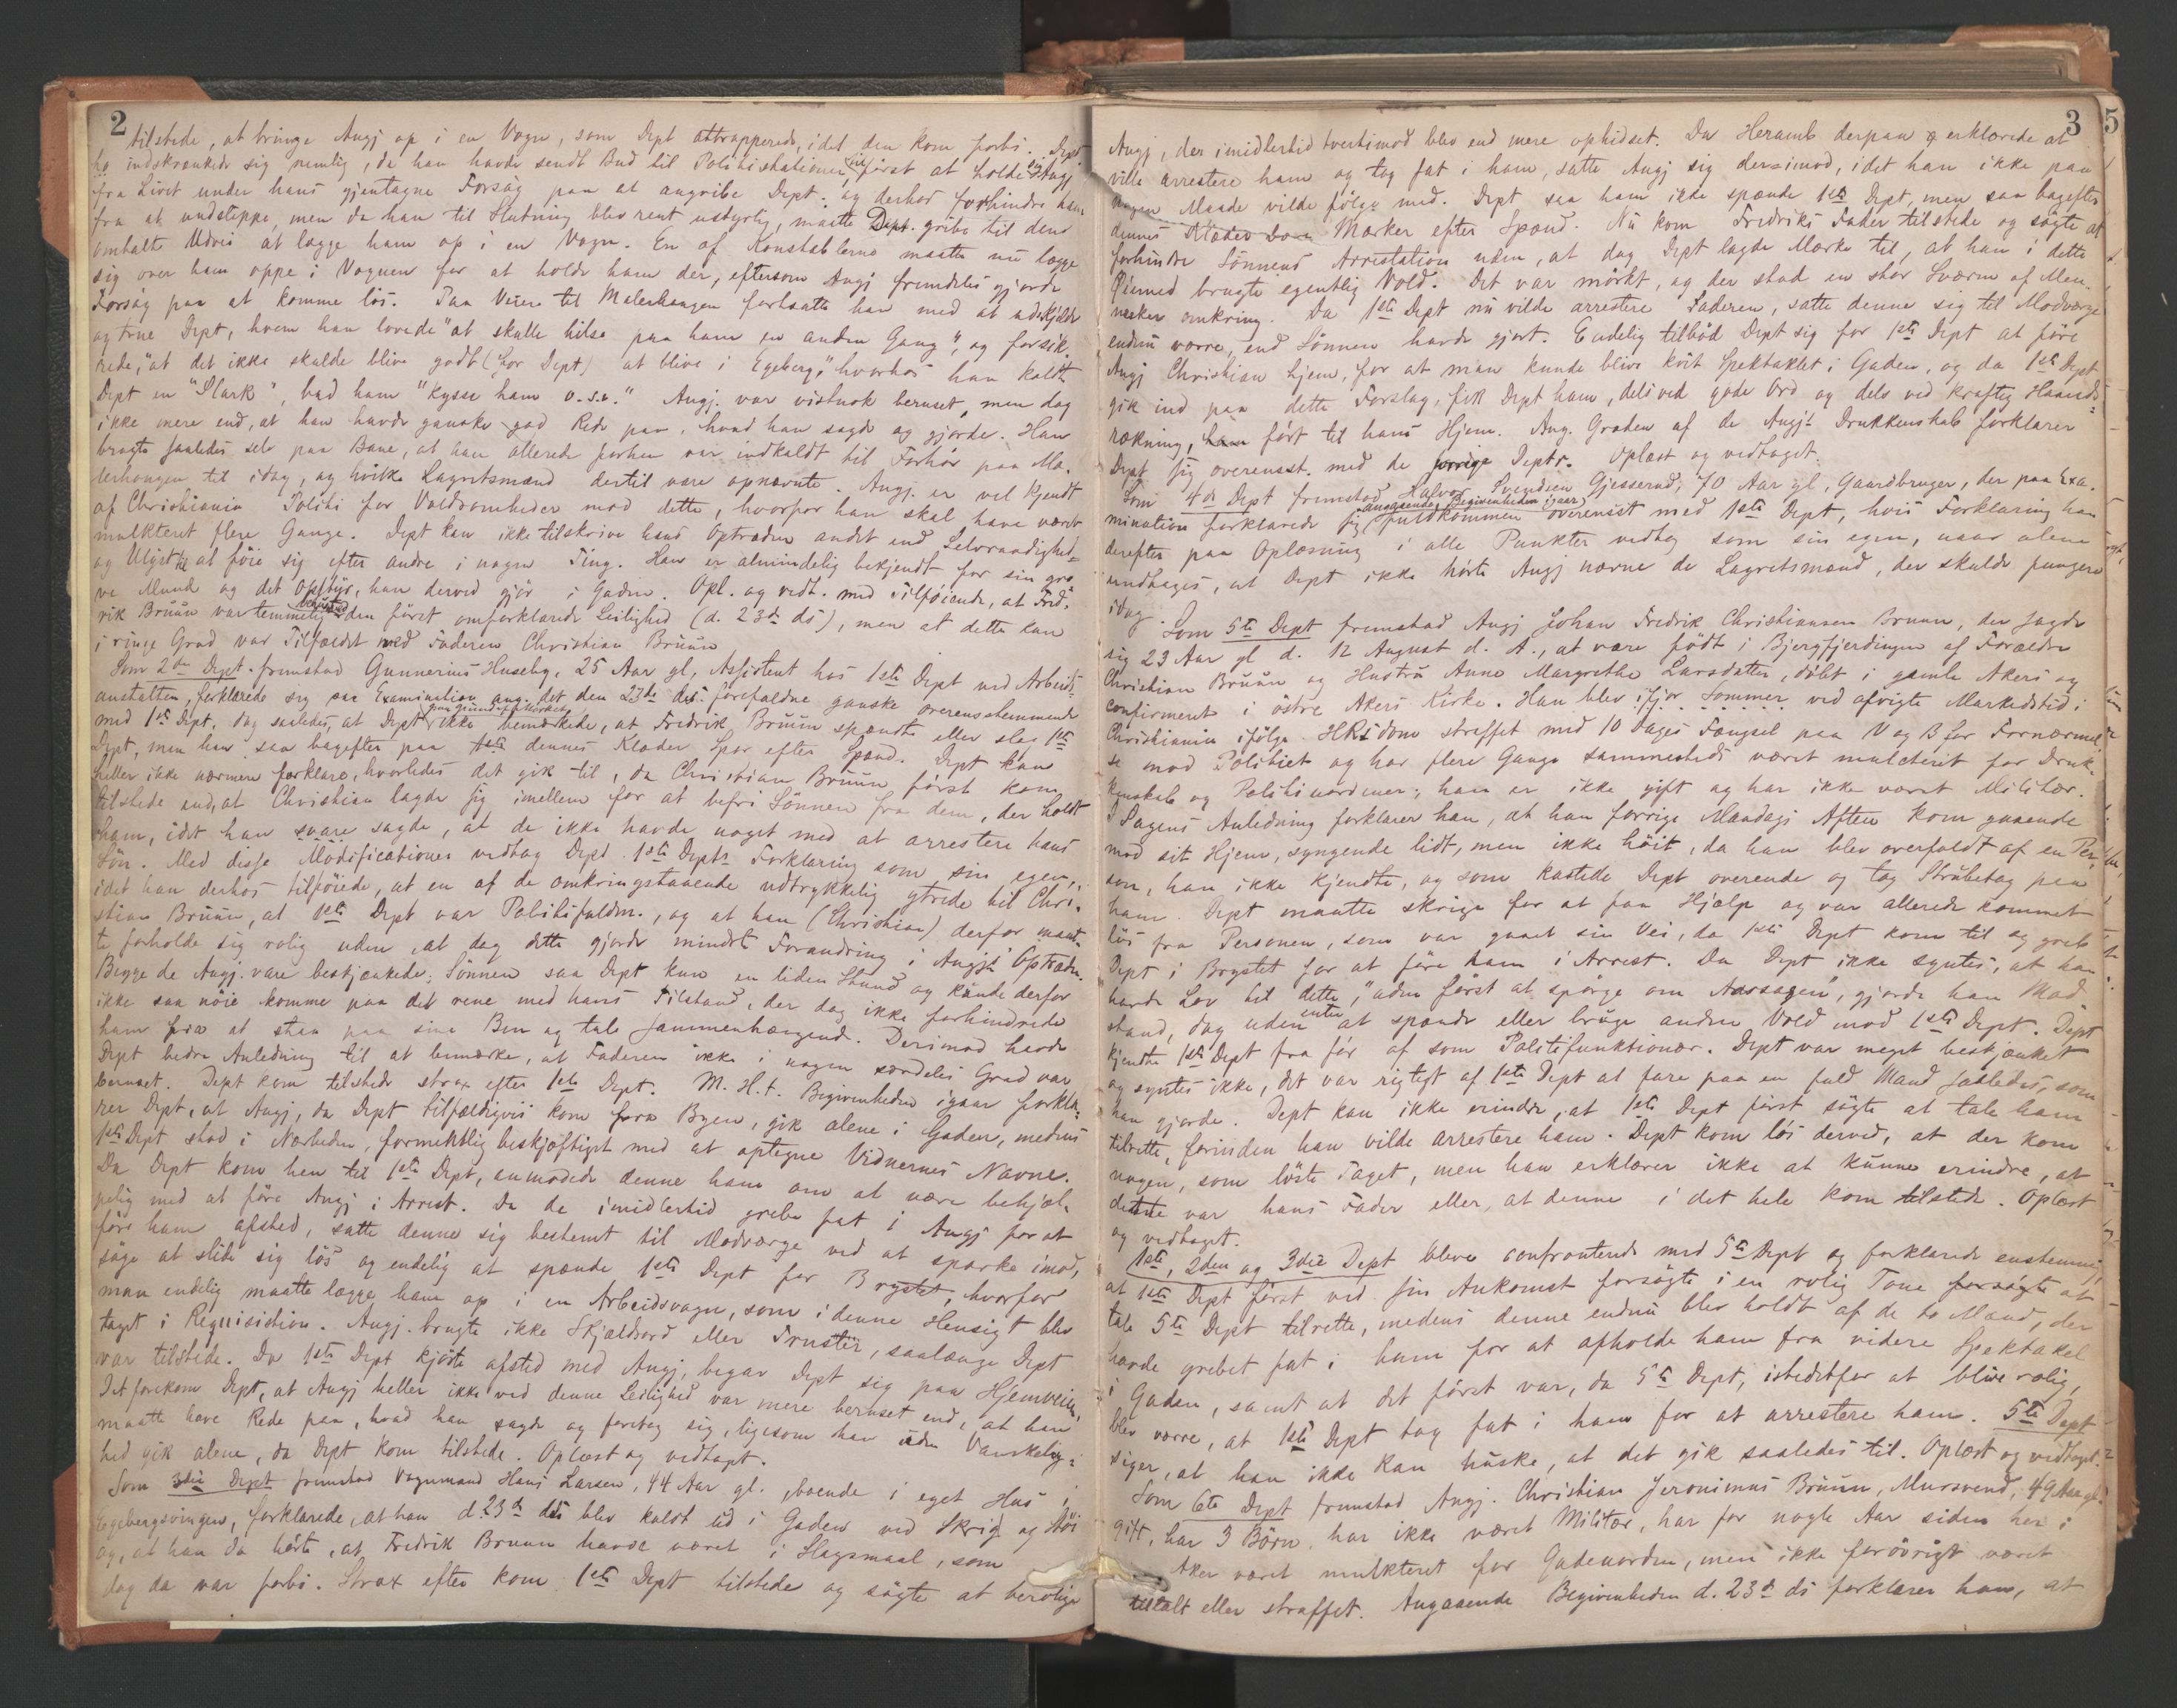 2
tilstede, at bringe Angj op i en Vogn, som Dept attrapperede, idet den kom forbi. Dept
indskrænkede sig nemlig, da han havde sendt Bud til Politistationen, til først at holde sig Angj
fra Livet under hans gjentagne Forsøg paa at angribe Dept. og derhos forhindre ham
fra at undslippe, men da han til Slutning blev rent ustyrlig, maatte Dept. gribe til den
omhalte Udvei at lægge ham op i en Vogn. En af Konstablerne maatte nu lægge
sig over ham oppe i Vognen for at holde ham der, eftersom Angj fremdeles gjorde
Forsøg paa at komme løs. Paa Veien til Malerhaugen fortsatte han med at udskjælde
og true Dept, hvem han lovede "at skulle hilse paa ham en anden Gang", og forsik.
rede, "at det ikke skulde blive godt (for Dept) at blive i Egeberg," hvorhos han kaldte
Dept en "Slark", bad ham "kysse ham o.s.v." Angj. var vistnok beruset, men dog
ikke mere end, at han havde ganske god Rede paa, hvad han sagde og gjorde. Han
bragte saaledes selv paa Bane, at han allerede forhen var indkaldt til Forhør paa Ma-
lerhaugen til idag, og hvilke Lagretsmænd dertil vare opnævnte. Angj. er vel kjendt
af Christiania Politi for Voldsomheder mod dette, hvorfor han skal have været
mulkteret flere Gange. Dept kan ikke tilskrive hans Optræden andet end Selvraadighed
og Ulyst til at føie sig efter andre i nogen Ting. Han er almindelig bekjendt for sin gro-
ve Mund og det Opstyr, han derved gjør i Gaden. Opl. og vedt. med Tilføiende, at Fred-
rik Bruun var temmelig beruset ved den først omforklarede Leilighed (d. 23de ds), men at dette kun
i ringe Grad var Tilfældet med Faderen Christian Bruun
Som 2den Dept. fremstod Gunnerius Huseby, 25 Aar gl, Assistent hos 1ste Dept ved Arbeids-
anstalten, forklarede sig paa Examination ang. det den 23de ds. forefaldne ganske overensstemmende
med 1ste Dept, dog saaledes, at Dept paa Grund af Mørket ikke bemærkede, at Fredrik Bruun spændte eller slog 1ste
Dept, men han saa bagefter paa dennes Klæder Spor efter Spænd. Dept kan
heller ikke nærmere forklare, hvorledes det gik til, da Christian Bruun først kom
tilstede end, at Christian lagde sig imellem for at befri Sønnen fra dem, der holdt
ham, idet han svare sagde, at de ikke havde noget med at arrestere hans
Søn. Med disse Modificationer vedtog Dept 1ste Depts Forklaring som sin egen,
idet han derhos tilføiede, at en af de omkringstaaende udtrykkelig ytrede til Chri-
stian Bruun, at 1ste Dept var Politifuldm., og at han (Christian) derfor maat-
te forholde sig rolig uden at dog dette gjorde mindste Forandring i Angjs Optræden.
Begge de Angj. vare beskjænkede; Sønnen saa Dept kun en liden Stund og kunde derfor
ikke saa nøie komme paa det rene med hans Tilstand, der dog ikke forhindrede
ham fra at staa paa sine Ben og tale sammenhængende. Derimod havde
Dept bedre Anledning til at bemærke, at Faderen ikke i nogen særdeles Grad var
beruset. Dept kom tilstede strax efter 1ste Dept. M. H. t. Begivenheden igaar forkla-
rer Dept, at Angj, da Dept tilfældigvis kom fra Byen, gik alene i Gaden, medens
1ste Dept stod i Nærheden, formentlig beskjæftiget med at optegne Vidnernes Navne.
Da Dept kom hen til 1ste Dept, anmodede denne ham om at være behjæl-
pelig med at føre Angj i Arrest. Da de imidlertid grebe fat i Angj for at
føre ham afsted, satte denne sig bestemt til Modværge ved at sparke imod,
søge at slide sig løs og endelig at spænde 1ste Dept for Brystet, hvorfor
man endelig maatte lægge ham op i en Arbeidsvogn, som i denne Hensigt blev
taget i Requisition. Angj. brugte ikke Skjældsord eller Trusler, saalænge Dept
var tilstede. Da 1ste Dept kjørte afsted med Angj, begav Dept sig paa Hjemveien.
Det forekom Dept, at Angj heller ikke ved denne Leilighed var mere beruset end, at han
maatte have Rede paa, hvad han sagde og foretog sig, ligesom han uden Vanskelig-
hed gik alene, da Dept kom tilstede. Oplæst og vedtaget.
Som 3die Dept fremstod Vognmand Hans Larsen, 44 Aar gl. boende i eget Hus i
Egebergsvingen, forklarede, at han d. 23de ds blev kaldt ud i Gaden ved Skrig og Støi
og, at han da hørte, at Fredrik Bruun havde været i Slagsmaal, som
dog da var forbi. Strax efter kom 1ste Dept tilstede og søgte at berolige
3
5
Angj, der imidlertid tvertimod blev end mere ophidset. Da Heramb derpaa erklærede at
ville arrestere ham og tog fat i ham, satte Angj sig der-imod, idet han ikke paa
nogen Maade vilde følge med. Dept saa ham ikke spænde 1ste Dept, men saa bagefter
dennes Klæder Mærker efter Spænd. Nu kom Fredriks Fader tilstede og søgte at
forhindre Sønnens Arrestation uden, at dog Dept lagde Mærke til, at han i dette
Øiemed brugte egentlig Vold. Det var mørkt, og der stod en stor Sværm af Men-
nesker omkring. Da 1ste Dept nu vilde arrestere Faderen, satte denne sig til Modværge
endnu værre, end Sønnen havde gjort. Endelig tilbød Dept sig for 1ste Dept at føre
Angj Christian hjem, for at man kunde blive kvit Spektaklet i Gaden, og da 1ste Dept
gik ind paa dette Forslag, fik Dept ham, dels ved gode Ord og dels ved kraftig Haands-
rækning, ført til hans Hjem. Ang. Graden af de Angjs Drukkenskab forklarer
Dept sig overensst. med de forrige Deptr. Oplæst og vedtaget.
Som 4de Dept fremstod Halvor Svendsen Gjesserud, 70 Aar gl, Gaardbruger, der paa Exa-
mination forklarede sig angaaende Begivenheden igaar fuldkommen overensst med 1ste Dept, hvis Forklaring han
derefter paa Oplæsning i alle Punkter vedtog som sin egen, naar alene
undtages, at Dept ikke hørte Angj nævne de Lagretsmænd, der skulde fungere
idag.
Som 5te Dept fremstod Angj Johan Fredrik Christiansen Bruun, der sagde
sig 23 Aar gl d. 12 August d. A., at være født i Bjergfjerdingen af Forældre
Christian Bruun og Hustru Anne Margrethe Larsdatter, døbt i gamle Akers og
confirmeret i østre Akers Kirke. Han blev ifjor Sommer ved afvigte Markedstid i
Christiania ifølge HRsdom straffet med 10 Dages Fængsel paa V og B for Fornærmel-
se mod Politiet og har flere Gange sammesteds været mulcteret for Druk-
kenskab og Politiuordener; han er ikke gift og har ikke været Militær.
I Sagens Anledning forklarer han, at han forrige Mandags Aften kom gaaende
mod sit Hjem, syngende lidt, men ikke høit, da han blev overfaldt af en Per-
son, han ikke kjendte, og som kastede Dept overende og tog Strubetag paa
ham. Dept maatte skrige for at faa Hjælp og var allerede kommet
løs fra Personen, som var gaaet sin Vei, da 1ste Dept kom til og greb
Dept i Brystet for at føre ham i Arrest. Da Dept ikke syntes, at han
havde Lov til dette, "uden først at spørge om Aarsagen", gjorde han Mod-
stand, dog uden enten at spænde eller bruge anden Vold mod 1ste Dept. Dept
kjendte 1ste Dept fra før af som Politifunktionær. Dept var meget beskjænket
og syntes ikke, det var rigtigt af 1ste Dept at fare paa en fuld Mand saaledes, som
han gjorde. Dept kan ikke erindre, at 1ste Dept først søgte at tale ham
tilrette, førinden han vilde arrestere ham. Dept kom løs derved, at der kom
nogen, som løste Taget, men han erklærer ikke at kunne erindre, at
dette var hans Fader eller, at denne i det hele kom tilstede. Oplæst
og vedtaget.
1ste, 2den og 3die Dept bleve confronterede med 5te Dept og forklarede enstemmig,
at 1ste Dept først ved sin Ankomst forsøgte i en rolig Tone forsøgte at
tale 5te Dept tilrette, medens denne endnu blev holdt af de to Mænd, der
havde grebet fat i ham for at afholde ham fra videre Spektakel
i Gaden, samt at det først var, da 5te Dept, istedetfor at blive rolig,
blev værre, at 1ste Dept tog fat i ham for at arrestere ham. 5te Dept
siger, at han ikke kan huske, at det gik saaledes til. Oplæst og vedtaget.
Som 6te Dept fremstod Angj. Christian Jeronimus Bruun, Mursvend, 49 Aar gl.
gift, har 3 Børn, har ikke været Militær, har for nogle Aar siden her i
Aker været mulkteret for Gadeuorden, men ikke forøvrigt været
tiltalt eller straffet. Angaaende Begivenheden d. 23de ds forklarer han, at